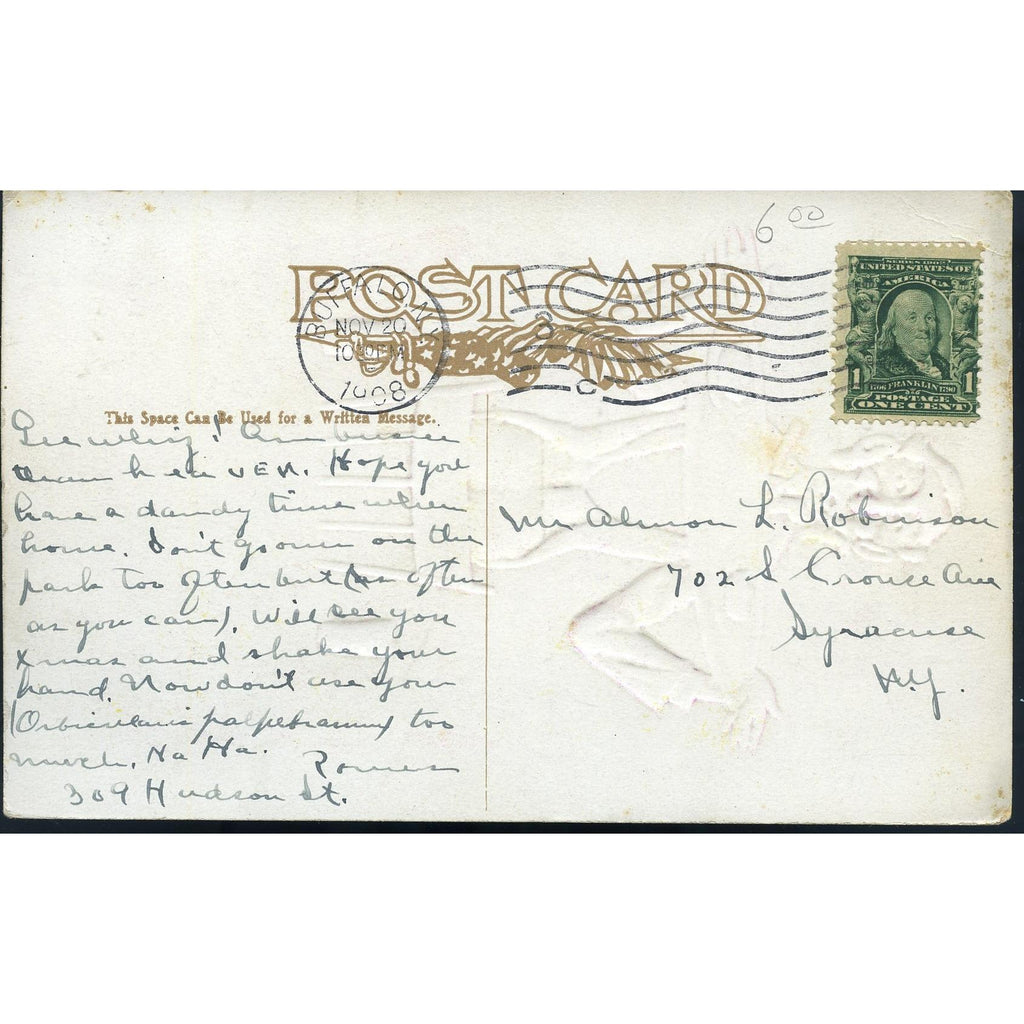 6 00
POST CARD
BUFFALO, N.Y.
NOV 20
10 PM
1908
C
SERIES 1902
UNITED STATES OF
AMERICA
1706 FRANKLIN 1790
1 POSTAGE 1
ONE CENT
This Space Can Be Used for a Written Message.
Gee whiz! Am busier
than heaven. Hope you
have a dandy time when
home. Don't go on the
park too often but (as often
as you can). Will see you
Xmas and shake your
hand. Now don't use your
(Orbicularis palpebrarum) too
much. Ha Ha.
309 Hudson St.
Mr Almon L. Robinson
702 S Crouse Ave
Syracuse
N.Y.